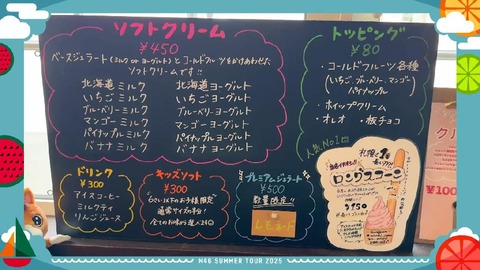 ソフトクリーム
¥450
ベースジェラート(ミルク or ヨーグルト)とコールドフルーツをかけあわせた
ソフトクリームです!!
北海道ミルク
いちごミルク
ブルーベリーミルク
マンゴーミルク
パイナップルミルク
バナナミルク
北海道ヨーグルト
いちごヨーグルト
ブルーベリーヨーグルト
マンゴーヨーグルト
パイナップルヨーグルト
バナナヨーグルト
トッピング
¥80
・コールドフルーツ各種
(いちご、ブルーベリー、マンゴー
パイナップル
・ホイップクリーム
・オレオ ・板チョコ
ドリンク
¥300
アイスコーヒー
ミルクティ
りんごジュース
キッズソフト
¥300
"6さい以下のお子様限定"
通常サイズの半分!
全てのお味から選べます
プレミアムジェラート
¥500
数量限定!!
人気No1
札幌で1番
ロングコーン
¥100
N46 SUMMER TOUR 2025